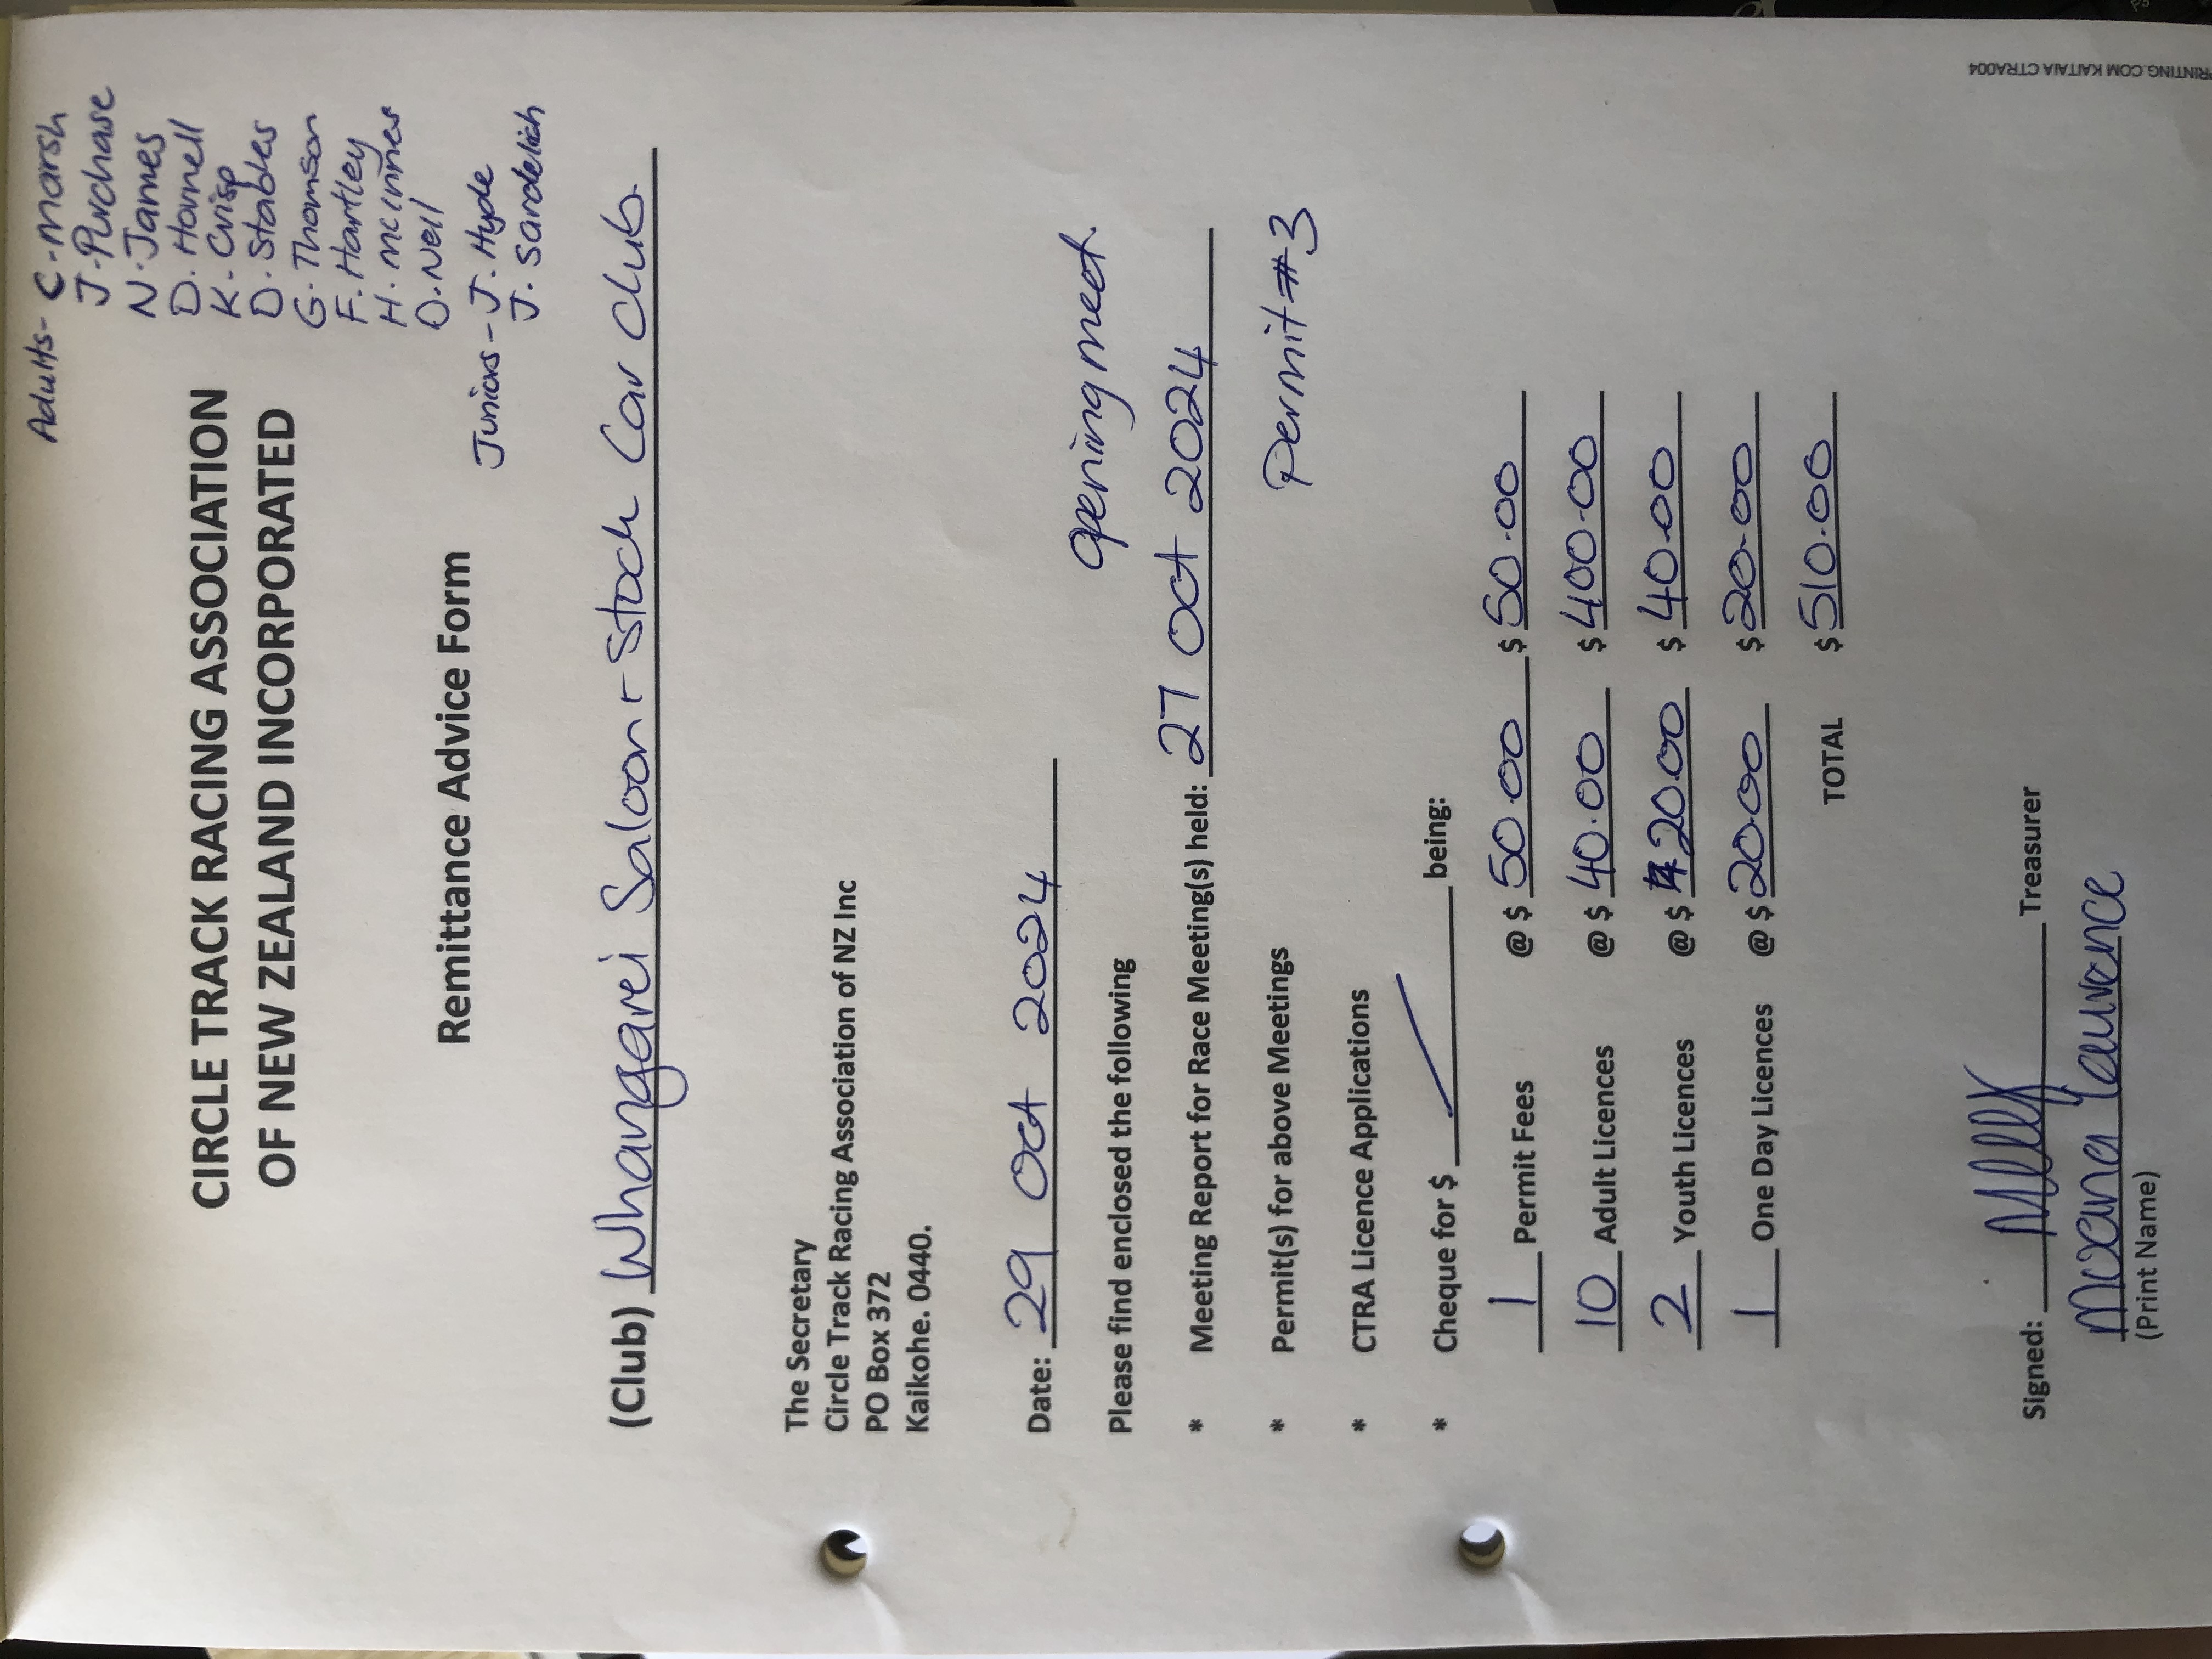 Adults - C. Marsh
J. Purchase
N. James
D. Harnell
K. Crisp
D. Stables
G. Thomson
F. Hartley
H. mcinnes
D. Neil
Juniors - J. Hyde
J. Sardelich
CIRCLE TRACK RACING ASSOCIATION
OF NEW ZEALAND INCORPORATED
Remittance Advice Form
(Club) Whangarei Saloon + Stock Car Club.
The Secretary
Circle Track Racing Association of NZ Inc
PO Box 372
Kaikohe. 0440.
Date: 29 Oct 2024
Please find enclosed the following
opening meet.
* Meeting Report for Race Meeting(s) held: 27 Oct 2024
* Permit(s) for above Meetings Permit #3
* CTRA Licence Applications
* Cheque for $ being:
1 Permit Fees @ $ 50.00 $ 50.00
10 Adult Licences @ $ 40.00 $ 400.00
2 Youth Licences @ $ 20.00 $ 40.00
1 One Day Licences @ $ 20.00 $ 20.00
TOTAL $ 510.00
Signed: Treasurer
Moana Lawrence
(Print Name)
PRINTING.COM KAITAIA CTRA004